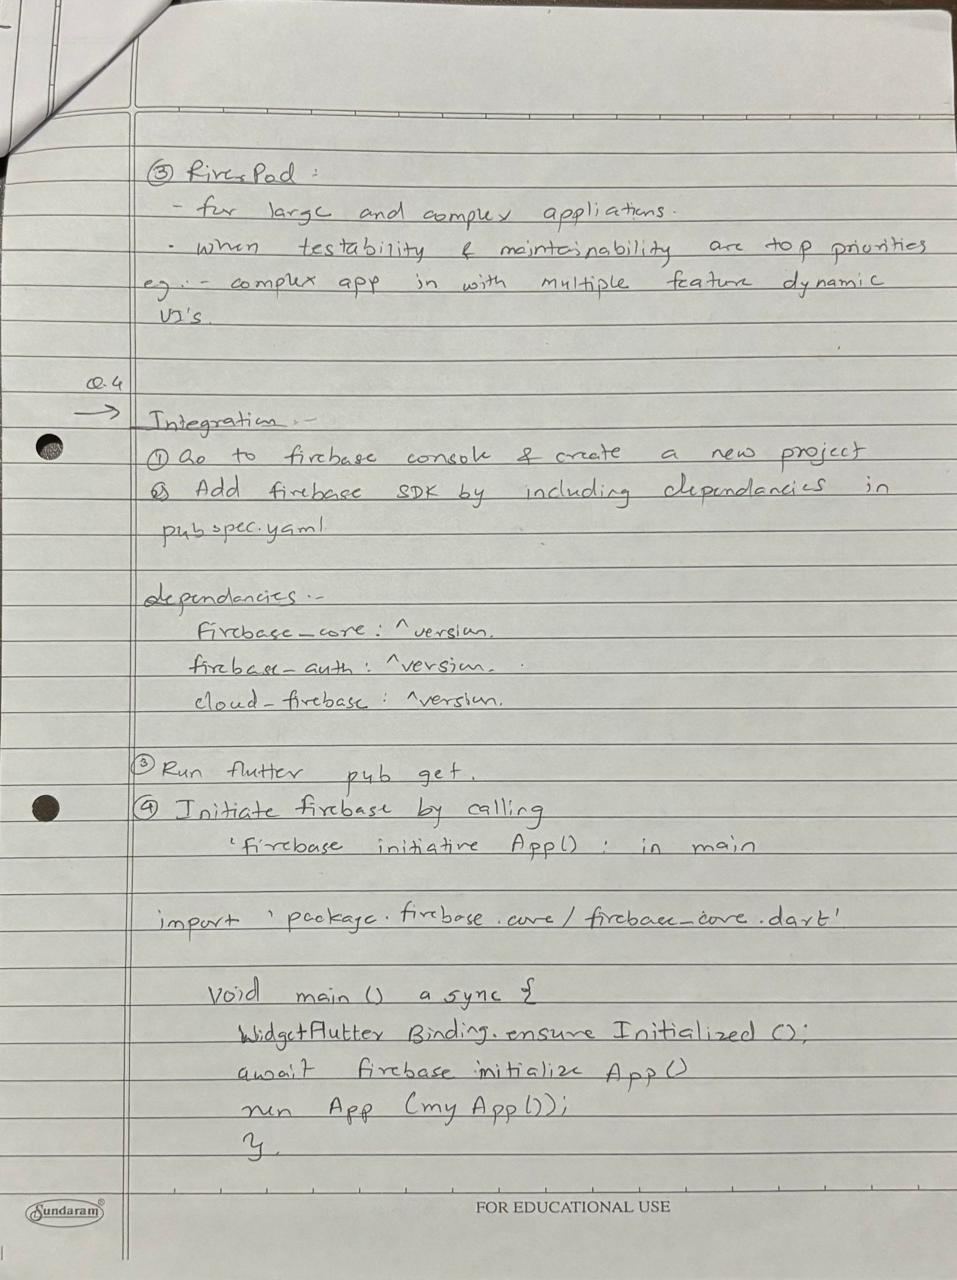 ③ RiverPod :
- for large and complex appliations.
- when testability & maintainability are top priorities
eg :- complex app in with multiple feature dynamic
UI's.
Q.4
→
Integration :-
① Go to firebase console & create a new project
② Add firebase SDK by including dependancies in
pubspec.yaml
dependancies :-
firebase_core : ^version.
firebase_auth : ^version.
cloud_firebase : ^version.
③ Run flutter pub get.
④ Initiate firebase by calling
'firebase initiative App() : in main
import 'package.firebase.core/firebase_core.dart'
void main () a sync {
WidgetFlutter Binding.ensure Initialized ();
await firebase initialize App()
run App (my App());
}.
Sundaram®
FOR EDUCATIONAL USE